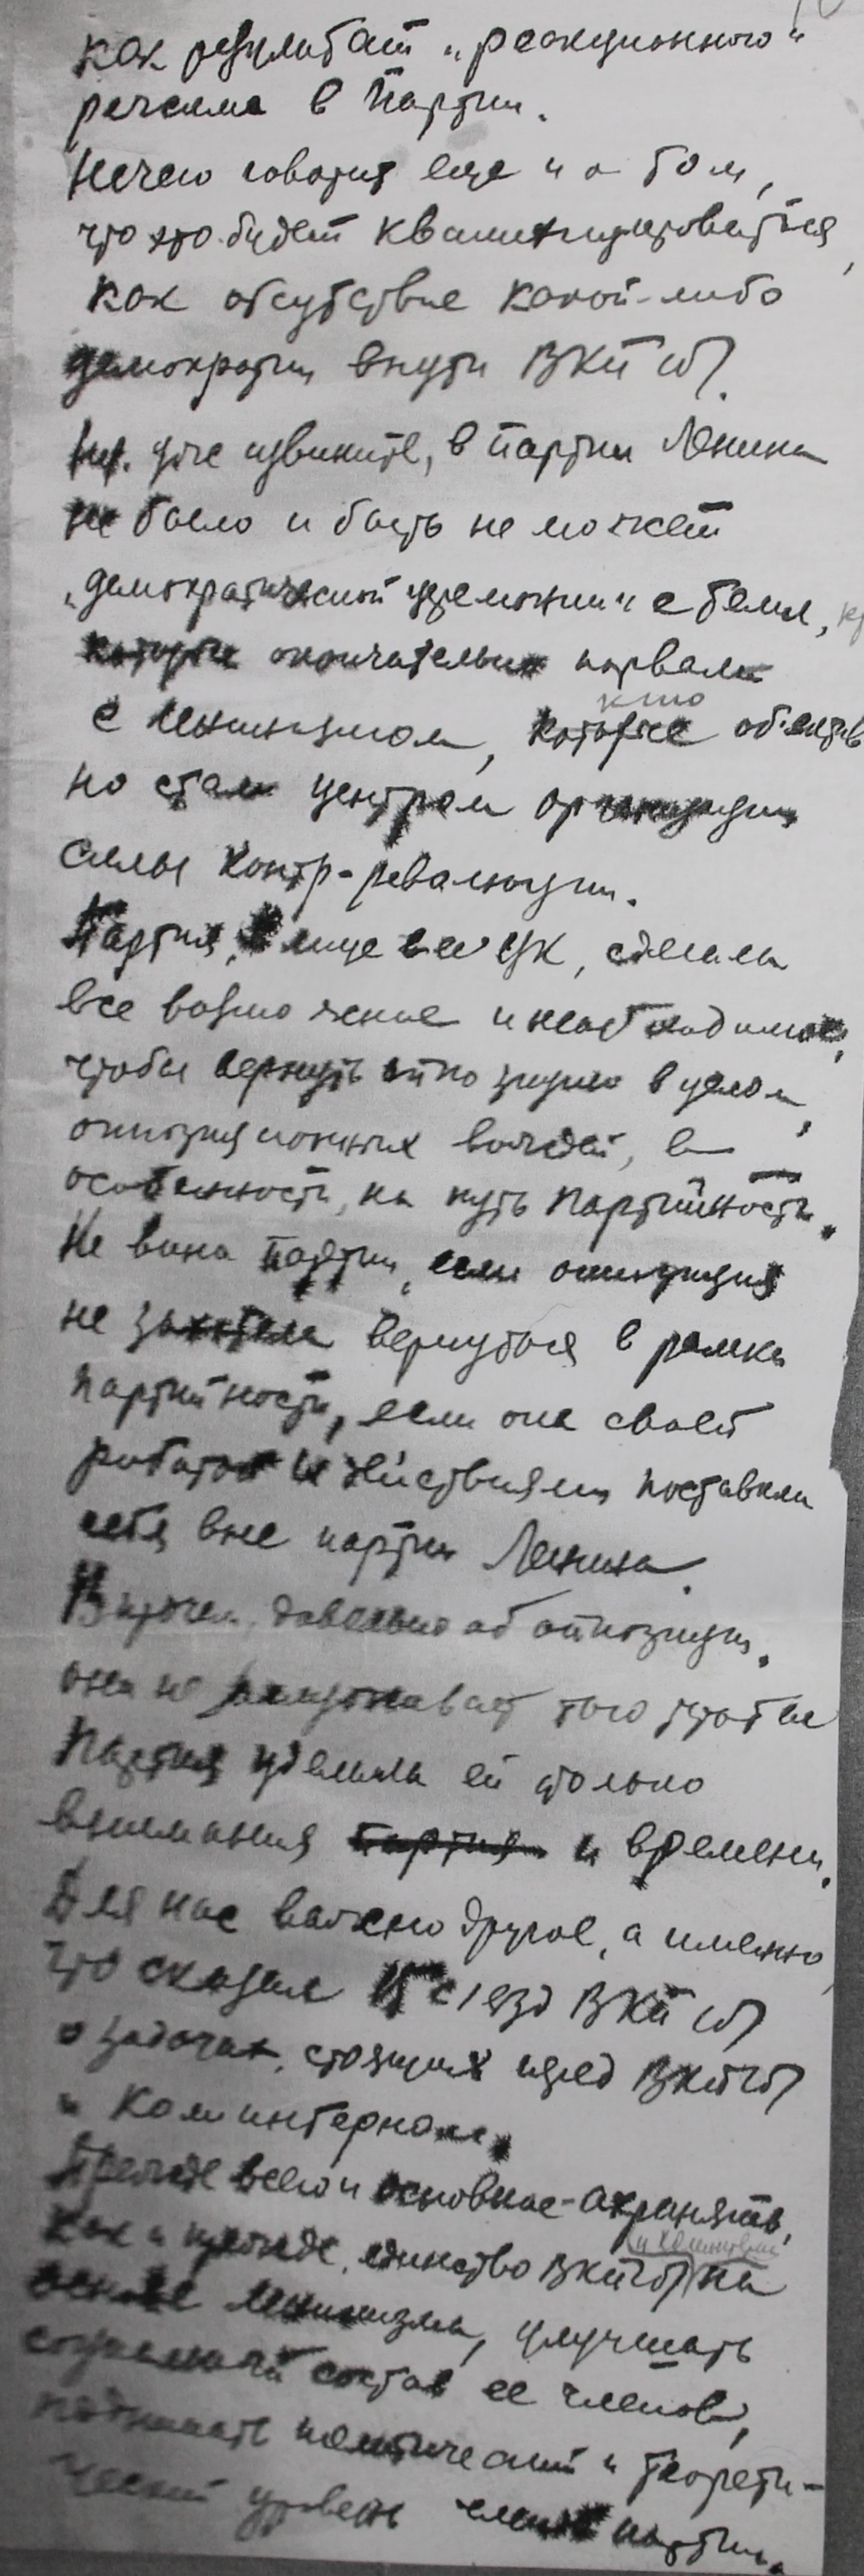 как результат „реакционного“
режима в Партии.
Нечего говорить еще и о том,
что это будет квалифицироваться,
как отсутствие какой-либо
демократии внутри ВКП(б).
Но, уже извините, в партии Ленина
не было и быть не может
„демократической церемонии“ с теми,
которые окончательно порвали
с ленинизмом, кто об'ектив
но стали центром организации
силы контр-революции.
Партия, в лице ее ЦК, сделала
все возможное и необходимое,
чтобы вернуть оппозицию в целом,
оппозиционных вождей, в
особенности, на путь партийности.
Не вина партии, если оппозиция
не захотела вернуться в рамки
партийности, если она своей
работой и действиями поставила
себя вне партии Ленина.
Впрочем, довольно об оппозиции.
Она не заслуживает того чтобы
Партия уделила ей столько
внимания партия и времени.
Для нас важно другое, а именно,
что сказал 15 с'езд ВКП(б)
о задачах, стоящих перед ВКП(б)
и Коминтерном.
Прежде всего и основное - охранять,
как и прежде, единство ВКП(б) и Коминтерна на
основе ленинизма, улучшать
социальный состав ее членов,
поднимать политический и теорети-
ческий уровень членов партии.